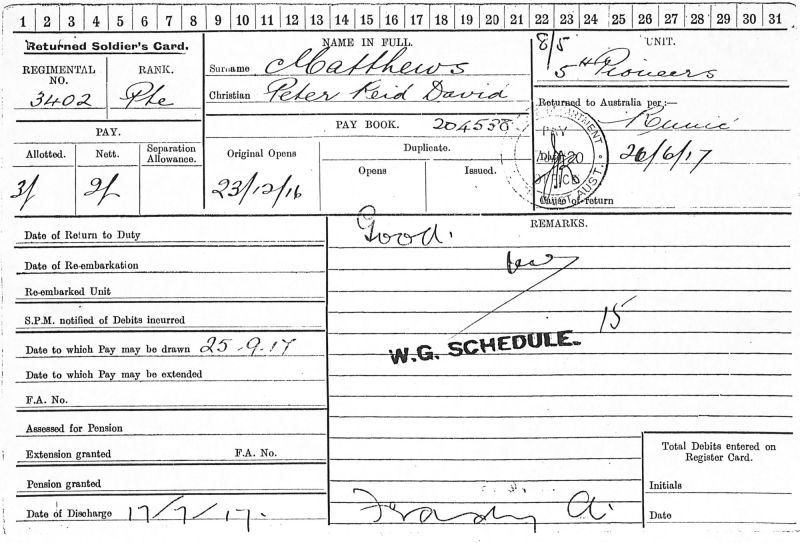 1 2 3 4 5 6 7 8 9 10 11 12 13 14 15 16 17 18 19 20 21 22 23 24 25 26 27 28 29 30 31
Returned Soldier's Card.
REGIMENTAL NO.
3402
RANK.
Pte
NAME IN FULL.
Surname Matthews
Christian Peter Reid David
8/5
UNIT.
5th Pioneers
PAY.
Allotted.
Nett.
Separation Allowance.
3/
2/
PAY BOOK. 204538
Original Opens
23/12/16
Duplicate.
Opens
Issued.
Returned to Australia per:—
Runic
26/6/17
PAY
AUST.
Cause of return
Date of Return to Duty
Date of Re-embarkation
Re-embarked Unit
S.P.M. notified of Debits incurred
Date to which Pay may be drawn 25.9.17
Date to which Pay may be extended
F.A. No.
Assessed for Pension
Extension granted F.A. No.
Pension granted
Date of Discharge 17/7/17.
REMARKS.
Good.
15
W.G. SCHEDULE.
Total Debits entered on Register Card.
Initials
Date